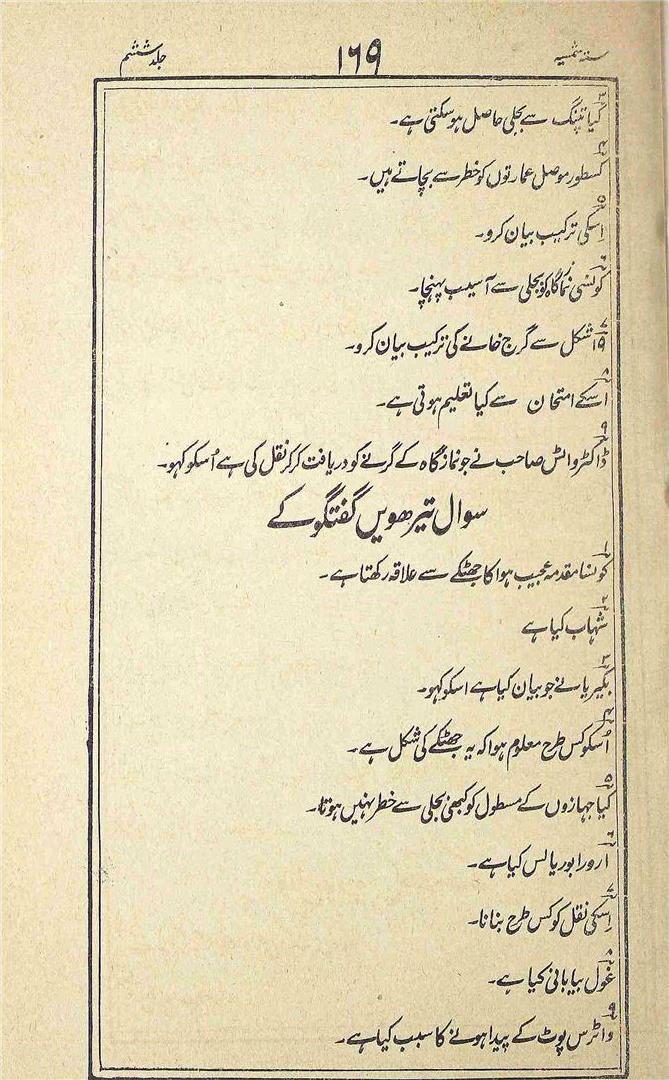 ستہ شمسیہ ۱۶۹ جلد ششم
۳ کیا تپنگ سے بجلی حاصل ہوسکتی ہے۔
۴ کسطور موصل عمارتوں کو خطر سے بچاتے ہیں۔
۵ اِسکی ترکیب بیان کرو۔
۶ کونسی نمازگاہ کو بجلی سے آسیب پہنچا۔
۷ ۱۹ شکل سے گرج خانے کی ترکیب بیان کرو۔
۸ اسکے امتحان سے کیا تعلیم ہوتی ہے۔
۹ ڈاکٹر واٹس صاحب نے جو نمازگاہ کے گرنے کو دریافت کرکر نقل کی ہے اُسکو کہو۔
سوال تیرھویں گفتگو کے
۱ کونسا مقدمہ عجیب ہوا کا جھٹکے سے علاقہ رکھتا ہے۔
۲ شہاب کیا ہے
۳ بکیریا نے جو بیان کیا ہے اسکو کہو۔
۴ اُسکو کس طرح معلوم ہوا کہ یہ جھٹکے کی شکل ہے۔
۵ کیا جہازوں کے مسطول کو کبھی بجلی سے خطر نہیں ہوتا۔
۶ ارورا بوریالس کیا ہے۔
۷ اِسکی نقل کو کس طرح بنانا۔
۸ غول بیابانی کیا ہے۔
۹ واٹرس پوٹ کے پیدا ہونے کا سبب کیا ہے۔